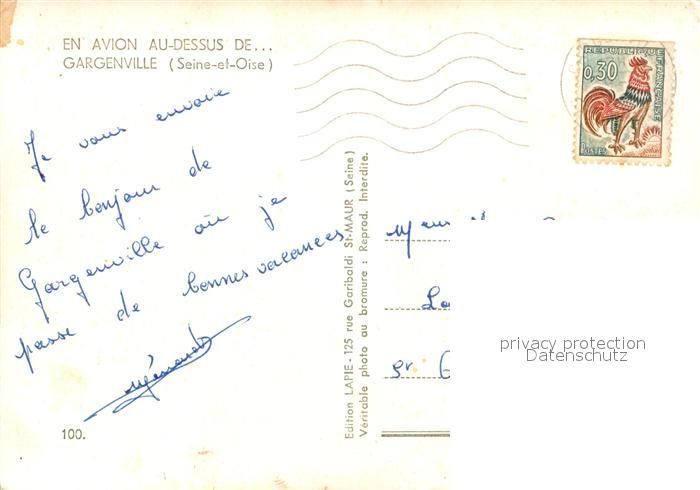 EN AVION AU-DESSUS DE...
GARGENVILLE (Seine-et-Oise)
Je vous envoie
le bonjour de
Gargenville où je
passe de bonnes vacances
100.
Edition LAPIE - 125 rue Garibaldi St-MAUR (Seine)
Véritable photo au bromure : Reprod. Interdite.
REPUBLIQUE FRANÇAISE
0,30
POSTES
privacy protection
Datenschutz